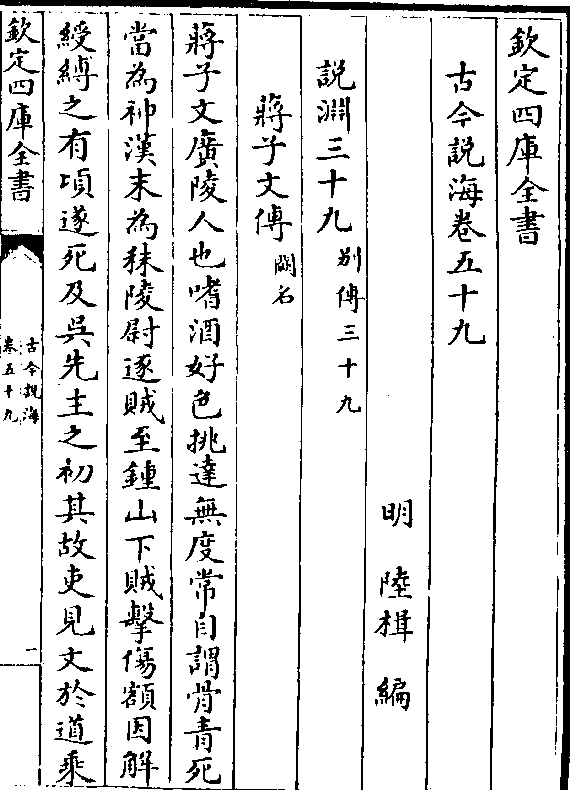 欽定四庫全書
古今説海卷五十九
明 陸楫 編
説淵三十九 别傳三十九
蔣子文傳 闕名
蔣子文廣陵人也嗜酒好色挑達無度常自謂骨青死
當為神漢末為秣陵尉逐賊至鍾山下賊擊傷額因解
綬縛之有頃遂死及吳先主之初其故吏見文於道乘
欽定四庫全書
古今說海
卷五十九
一